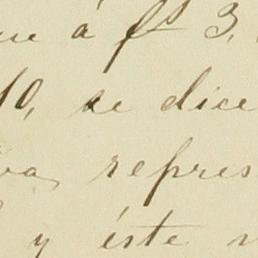 á fs 3,
10, se dice
repres
y éste